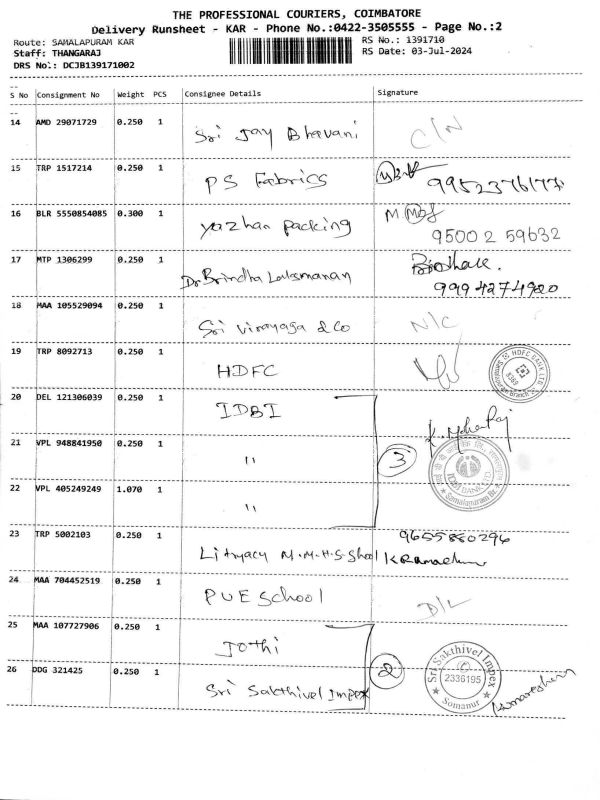 THE PROFESSIONAL COURIERS, COIMBATORE
Delivery Runsheet - KAR - Phone No.:0422-3505555 - Page No.:2
Route: SAMALAPURAM KAR
RS No.: 1391710
Staff: THANGARAJ
RS Date: 03-Jul-2024
DRS No.: DCJB139171002
S No Consignment No Weight PCS Consignee Details Signature
14 AMD 29071729 0.250 1 Sri Jay Bhavani C/N
15 TRP 1517214 0.250 1 PS Fabrics
16 BLR 5550854085 0.300 1 yazhan packing
95002 59632
17 MTP 1306299 0.250 1 Dr Brindha Laksmanan
9994274920
18 MAA 105529094 0.250 1 Sri Vinayaga & Co N/C
19 TRP 8092713 0.250 1 HDFC
HDFC BANK LTD
20 DEL 121306039 0.250 1 IDBI
21 VPL 948841950 0.250 1 " 3
Somalapuram Br.
22 VPL 405249249 1.070 1 "
23 TRP 5002103 0.250 1 M.M.H.S.Shool
9655880296
24 MAA 704452519 0.250 1 PUE School D/L
25 MAA 107727906 0.250 1 Jothi
26 DDG 321425 0.250 1 Sri Sakthivel Impex 2
Sri Sakthivel Impex
2336195
Somanur